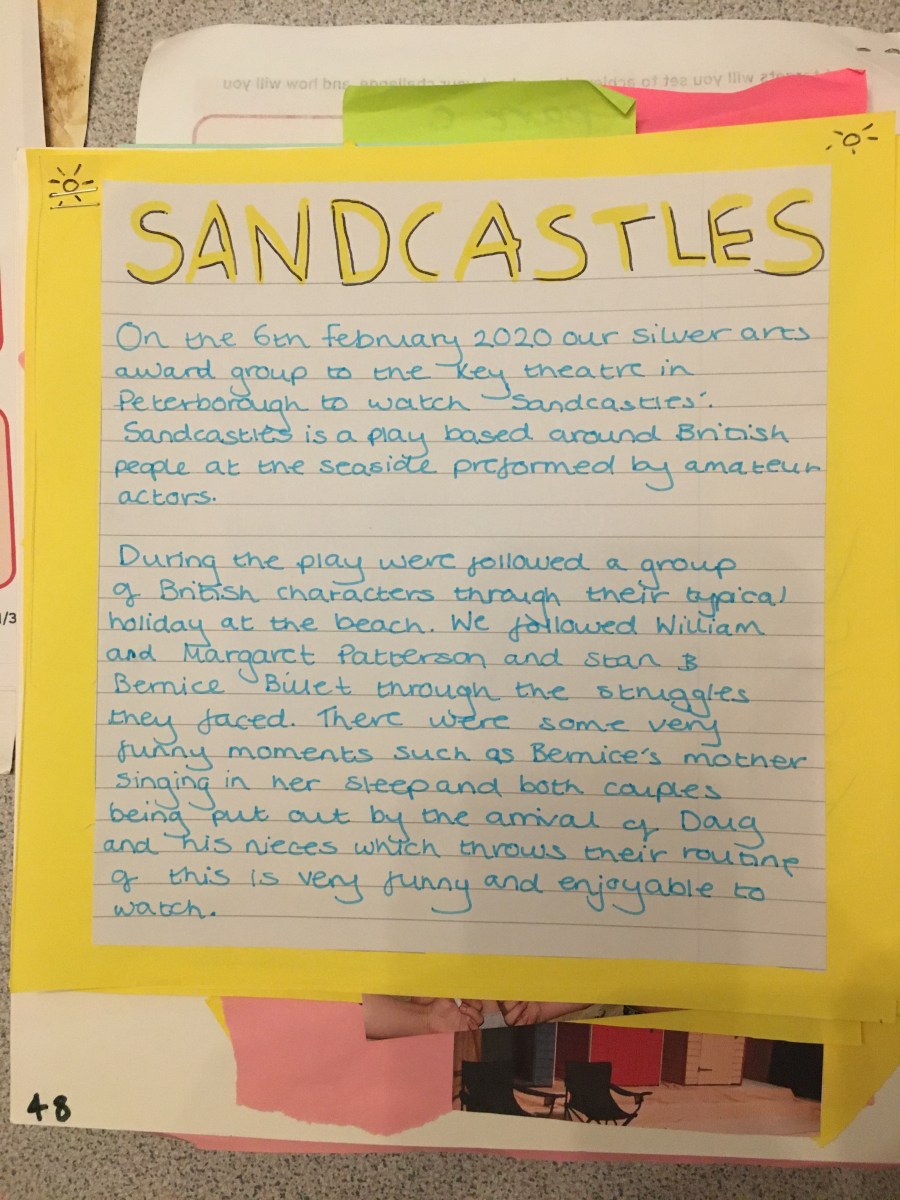 SANDCASTLES
On the 6th february 2020 our silver arts
award group to the key theatre in
Peterborough to watch "Sandcastles".
Sandcastles is a play based around British
people at the seaside preformed by amateur
actors.
During the play were followed a group
of British characters through their typical
holiday at the beach. We followed William
and Margaret Patterson and Stan &
Bernice Billet through the struggles
they faced. There were some very
funny moments such as Bernice's mother
singing in her sleep and both couples
being put out by the arrival of Doug
and his nieces which throws their routine
of this is very funny and enjoyable to
watch.
48
1/3